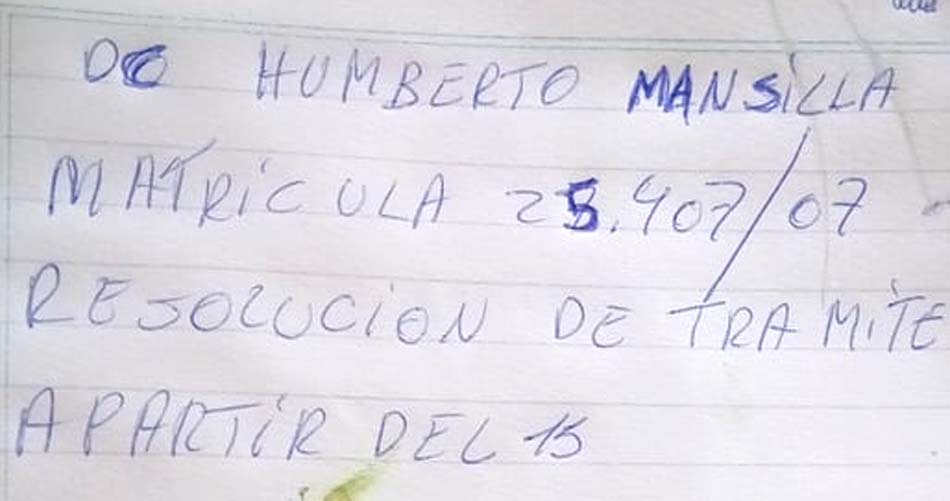 DC HUMBERTO MANSiLLA
MATRiCULA 25.407/07
RESOLUCiON DE TRAMiTE
APARTiR DEL 15